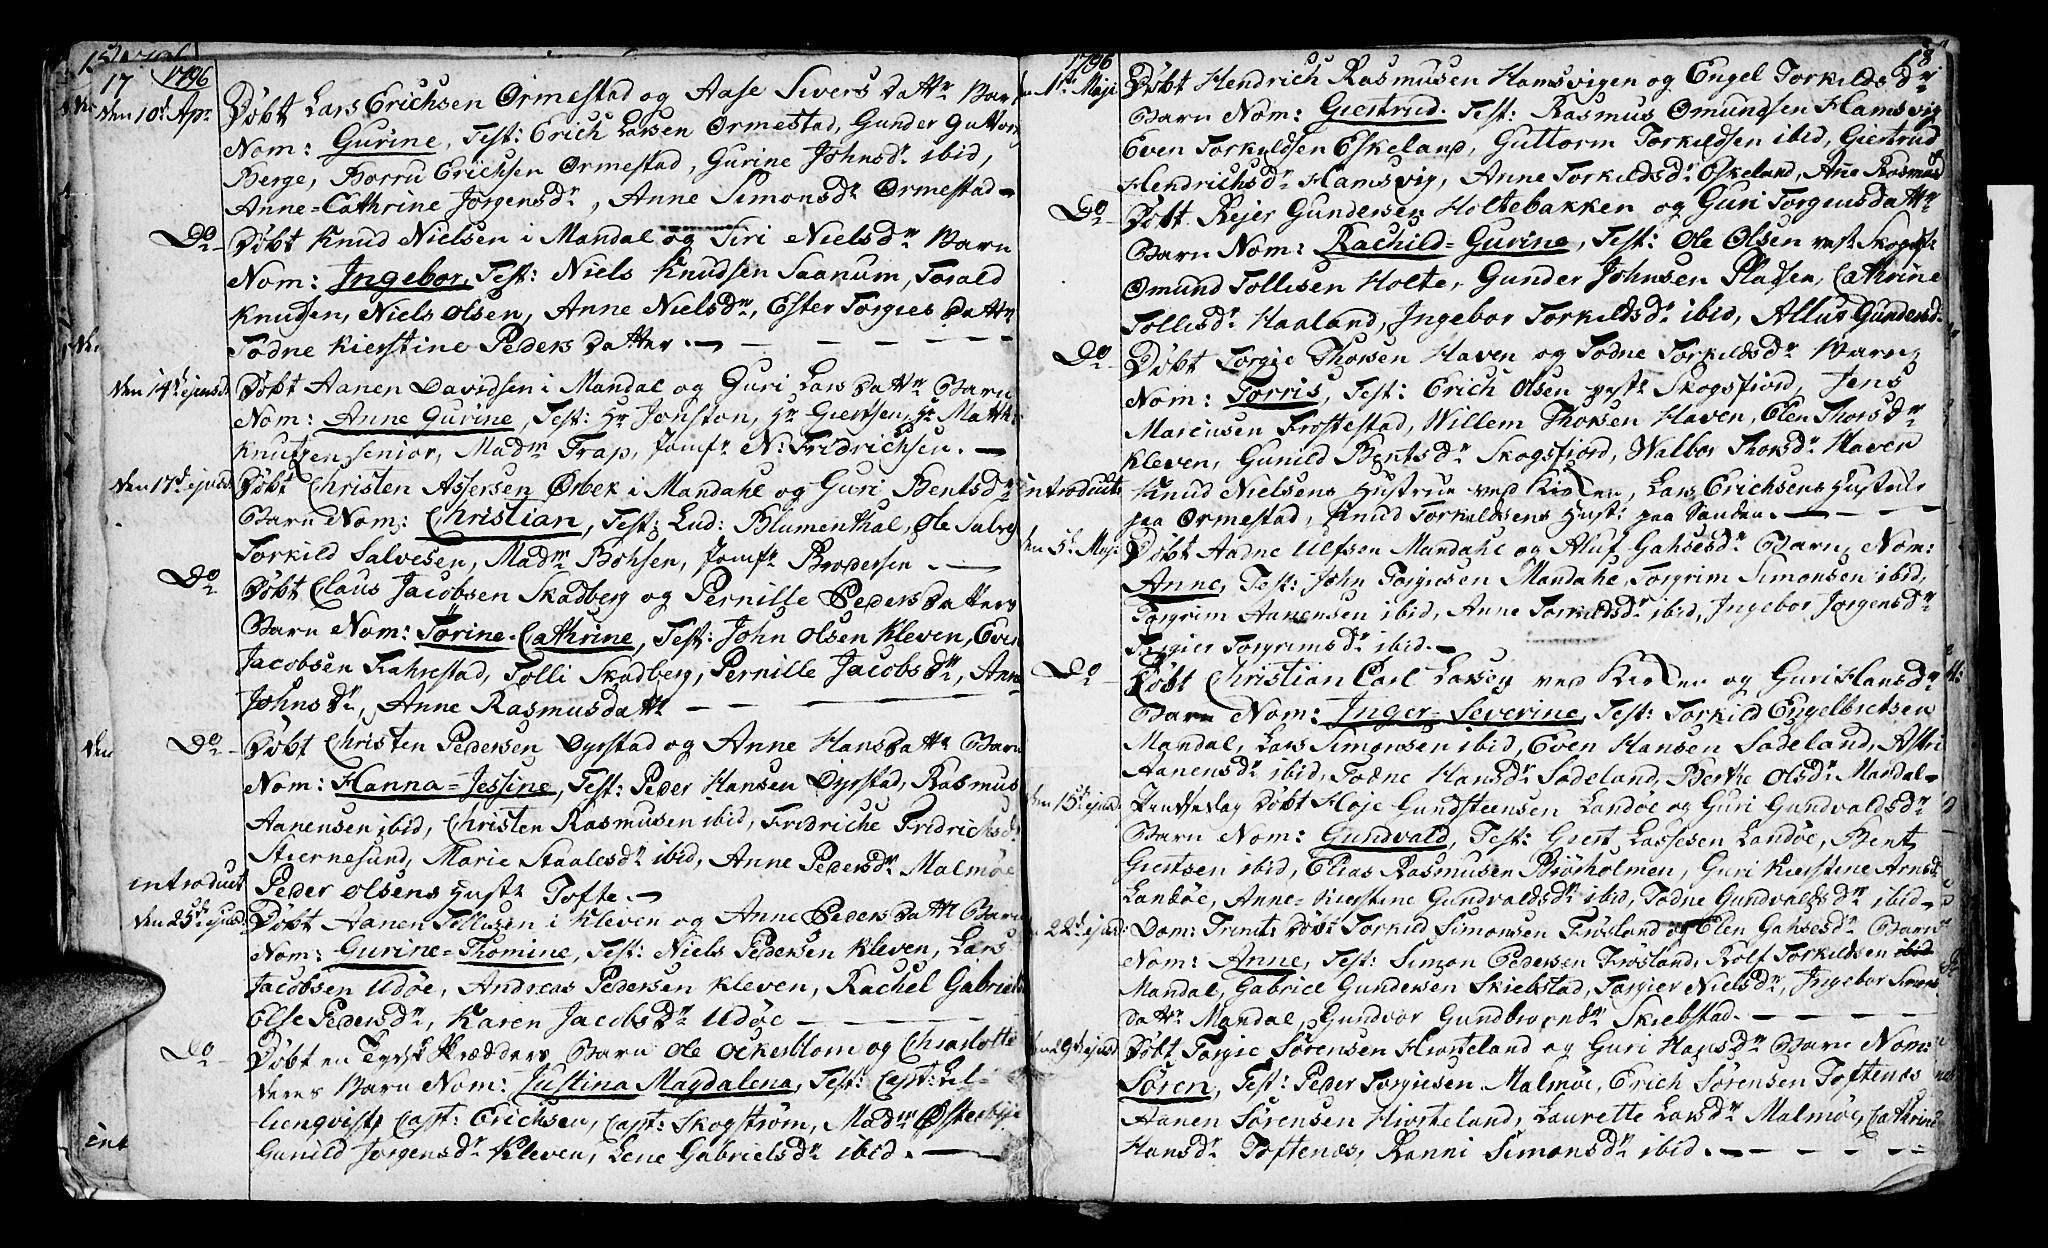 17 1796
den 10de Apr: Døbt Lars Erichsen Ormestad og Aase Sivers Dattr Barn
Nom: Gurine, Test: Erich Larsen Ormestad, Gunder Guttorms
Berge, Borru Erichsen Ormestad, Gurine Johnsdr ibid,
Anne=Cathrine Jørgensdr, Anne Simonsdr Ormestad
Do Døbt Knud Nielsen i Mandal og Siri Nielsdr Barn
Nom: Ingebor, Test: Niels Knudsen Saanum, Torald
Knudsen, Niels Olsen, Anne Nielsdr, Ester Torgies Dattr
Todne Kierstine Peders Datter.
den 14de ejusd: Døbt Aanen Davidsen i Mandal og Guri Lars Dattr Barn
Nom: Anne Gurine, Test: Hr Jonston, Hr Giertsen, Hr Matth:
Knutzen senior, Madm Trap, Jomfr N: Fridrichsen.
den 17de ejusd: Døbt Christen Assersen Ørbek i Mandahl og Guri Bentsdr
Barn Nom: Christian, Test: Lud: Blumenthal, Ole Salves
Torkild Salvesen, Madm Bohsen, Jomfr Brodersen.
Do Døbt Claus Jacobsen Skadberg og Pernille Peders Datters
Barn Nom: Torine-Cathrine, Test: John Olsen Kleven, Even
Jacobsen Fahrestad, Tolli Skadberg, Pernille Jacobsdr, Anne
Johnsdr, Anne Rasmusdattr
Do Døbt Christen Pedersen Dyrstad og Anne Hansdattr Barn
Nom: Hanna=Jessine, Test: Peder Hansen Dyrstad, Rasmus
Aanensen ibid, Christen Rasmusen ibid, Fridriche Fridrichsdr
Stiernesund, Marie Staalesdr ibid, Anne Pedersdr Malmøe
introduct Peder Olsens Hustr Tofte.
den 25de ejusd: Døbt Aanen Tellusen i Kleven og Anne Peders Dattr Barn
Nom: Gurine=Thomine, Test: Niels Pedersen Kleven, Lars
Jacobsen Udøe, Andreas Pedersen Kleven, Rachel Gabriels
Else Pedersdr, Karen Jacobsdr Udøe
Do Døbt en Tydsk Skrædders Barn Ole Ockerblom og Charlotte
deres Barn Nom: Justina Magdalena, Test: Capt: Lil-
lienqvist, Capt: Erichsen, Capt: Skogstrøm, Madm Østerbye
Gunild Jørgensdr Kleven, Lene Gabrielsdr ibid.
1796 18
1ste Maji Døbt Hendrich Rasmusen Hamsvigen og Engel Torkildsdr
Barn Nom: Giertrud. Test: Rasmus Omundsen Hamsvig
Even Torkildsen Eskeland, Guttorm Torkildsen ibid, Giertrud
Hendrichsdr Hamsvig, Anne Torkildsdr Eskeland, Ane Rasmusdr
Do Døbt Rejer Gundersen Holtebakken og Guri Torgiusdattr
Barn Nom: Rachild=Gurine, Test: Ole Olsen vestr Skogsf:
Omund Tollisen Holte, Gunder Johnsen Pladsen, Cathrine
Tollisdr Haaland, Ingebor Torkildsdr ibid, Allus Gundersd:
Do Døbt Torgie Thorsen Haven og Todne Torkildsdr Barn
Nom: Torris, Test: Erich Olsen vestr Skogsfiord, Jens
Marcusen Frostestad, Willem Thorsen Haven, Elen Thorsdr
Kleven, Gunild Bentsdr Skogsfiord, Walbor Thorsdr Haven
introduct: Knud Nielsens Hustrue ved Kirken, Lars Erichsens Hustrue
paa Ormestad, Knud Torkildsens Hustr: paa Sanden.
den 5te Maji Døbt Aadne Ulfsen Mandahl og Aluf Gahsesdr Barn Nom:
Anne, Test: John Torgiesen Mandahl, Torgrim Simonsen ibid,
Torgrim Aanensen ibid, Anne Torkildsdr ibid, Ingebor Jørgensdr
Torgier Torgrimsdr ibid.
Do Døbt Christian Carl Larsen ved Kirken og Guri Hansdr
Barn Nom: Inger=Severine, Test: Torkild Engelbretsen
Mandal, Lars Simonsen ibid, Even Hansen Sodeland, Astri
Aanensdr ibid, Todne Hansdr Sodeland, Berthe Olsdr Mandal
den 15de ejusd: Pindsedag Døbt Høje Gundsteensen Landøe og Guri Gundvaldsdr
Barn Nom: Gundvald, Test: Giert Lassesen Landøe, Bent
Giertsen ibid, Elias Rasmusen Biørholmen, Guri Kierstine Arnsd:
Landøe, Anne=Kierstine Gundvaldsdr ibid, Todne Gundvaldsdr ibid
22de ejusd: Dom: Trinit: Døbt Torkild Simonsen Frøsland og Elen Gahsesdr Barn
Nom: Anne, Test: Simon Pedersen Frøsland, Rolf Torkildsen ibid
Mandal, Gabriel Gundersen Skiebstad, Torgier Nielsdr, Ingebor Simons
Dattr Mandal, Gundvor Gundbiørnsdr Skiebstad.
den 29de ejusd: Døbt Torgie Sørensen Hiorteland og Guri Hansdr Barn Nom:
Søren, Test: Peder Torgiesen Malmøe, Erich Sørensen Toftenæs
Aanen Sørensen Hiorteland, Laurette Larsdr Malmøe, Cathrine
Hansdr Toftenæs, Ranni Simonsdr ibid.